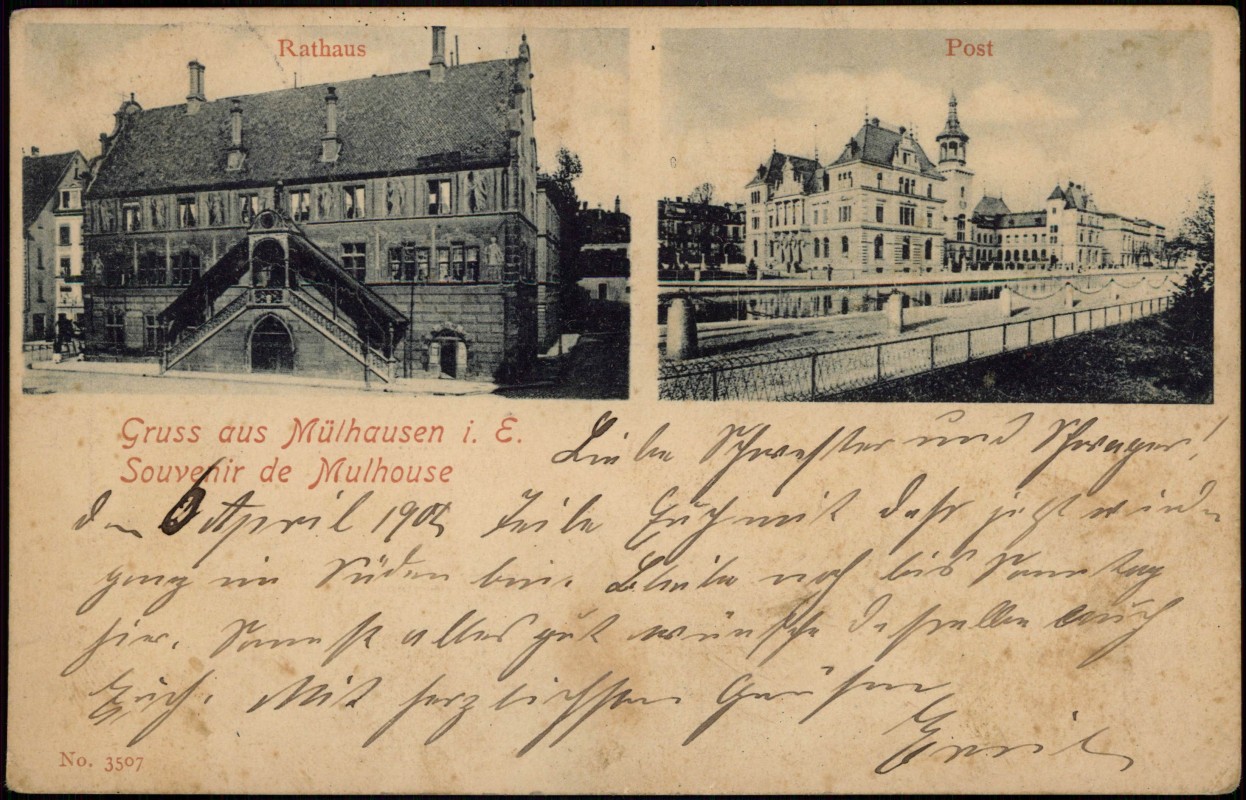 Rathaus
Post
Gruss aus Mülhausen i. E.
Souvenir de Mulhouse
Liebe Schwester und Schwager!
den 6 April 1902 Teile Euch mit daß jetzt wieder
ganz im Süden bin. Bleibe noch bis Sonntag
hier. Sonst alles gut wünsche dasselbe auch
Euch. Mit herzlichsten Grüßen
No. 3507